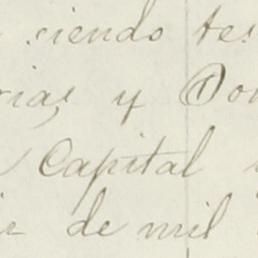 siendo tes
rias y Don
Capital
de mil